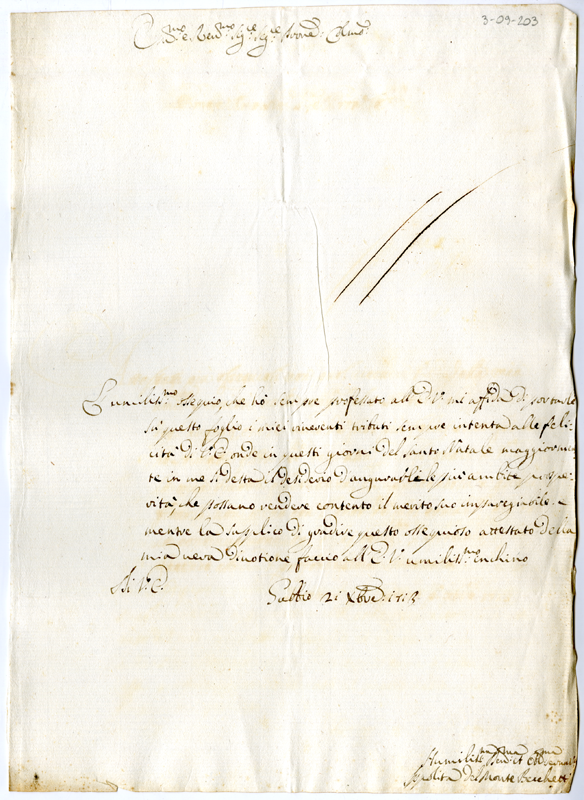 3-09-203
E.mo e Rev.mo Sig.re Sig.re Pron.e Col.mo
L'umilis.mo ossequio, che hò sempre professato all'E.V. mi affida di portarle
sù questo foglio i miei riverenti tributi sempre intenta alle feli
cità di V.E. onde in questi giorni del Santo Natale maggiormen
te in me si desta il desiderio d'augurarle le più ambite prosperi
vità, che possano rendere contento il merito suo impareggiabile. e
mentre la supplico di gradire questo ossequioso attestato della
mia vera divotione faccio all'E.V. umilis.mo enchino
Di V.E.
Gubbio 21 Xbre
Humilis.ma
Ipolita del Monte Becchetti